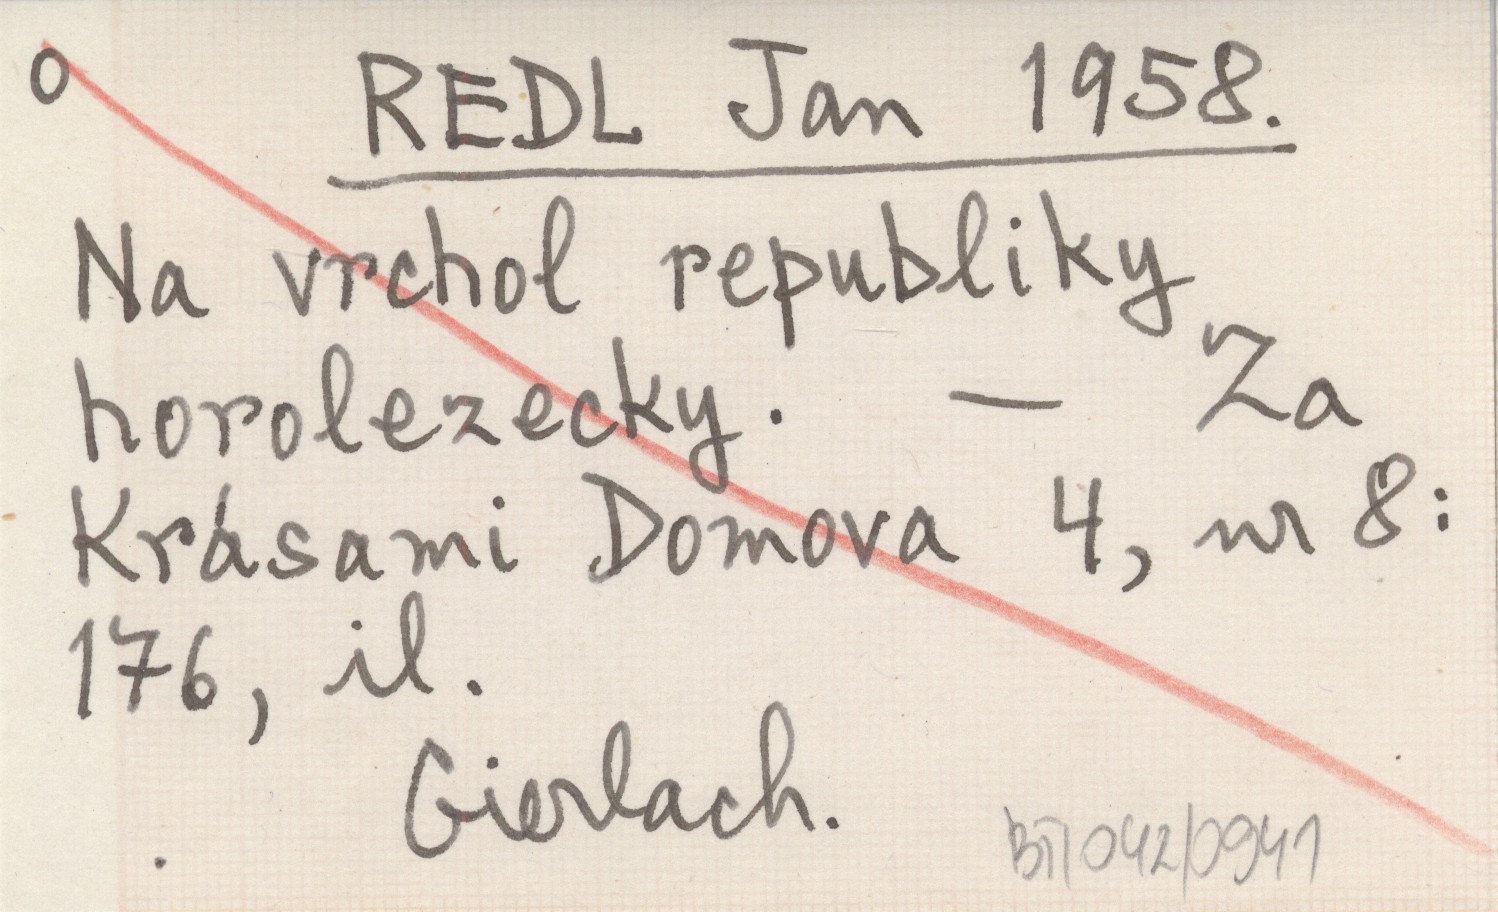 o REDL Jan 1958.
Na vrchol republiky
horolezecky. — Za
Krásami Domova 4, nr 8:
176, il.
Gierlach.
BT/042/0941